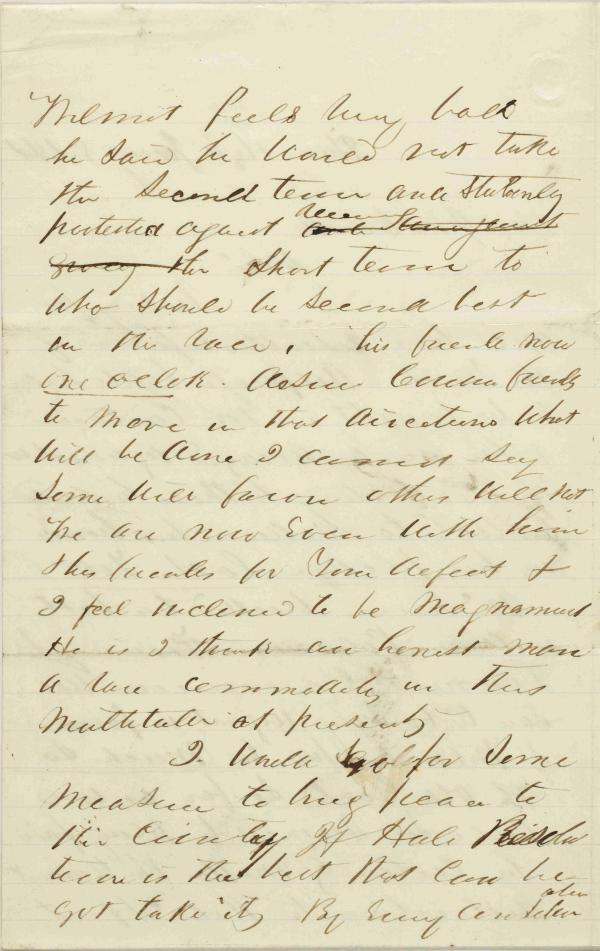 Wilmot feels very bad
he said he would not take
the Second term and Stubornly
protested against
the Short term to
who should be second best
in the race, his friends now
one oclok. desire Cowan friends
to move in that direction what
will be done I cannot say
Some will favor others will not
We are now Even with him
& his friends for Your defeat &
I feel inclined to be Magnanimous
He is I think an honest man
a rare commodity in this
at present
I would go for Some
measure to bring peace to
this Country If Hale
is the best that can be
got take it, By Every